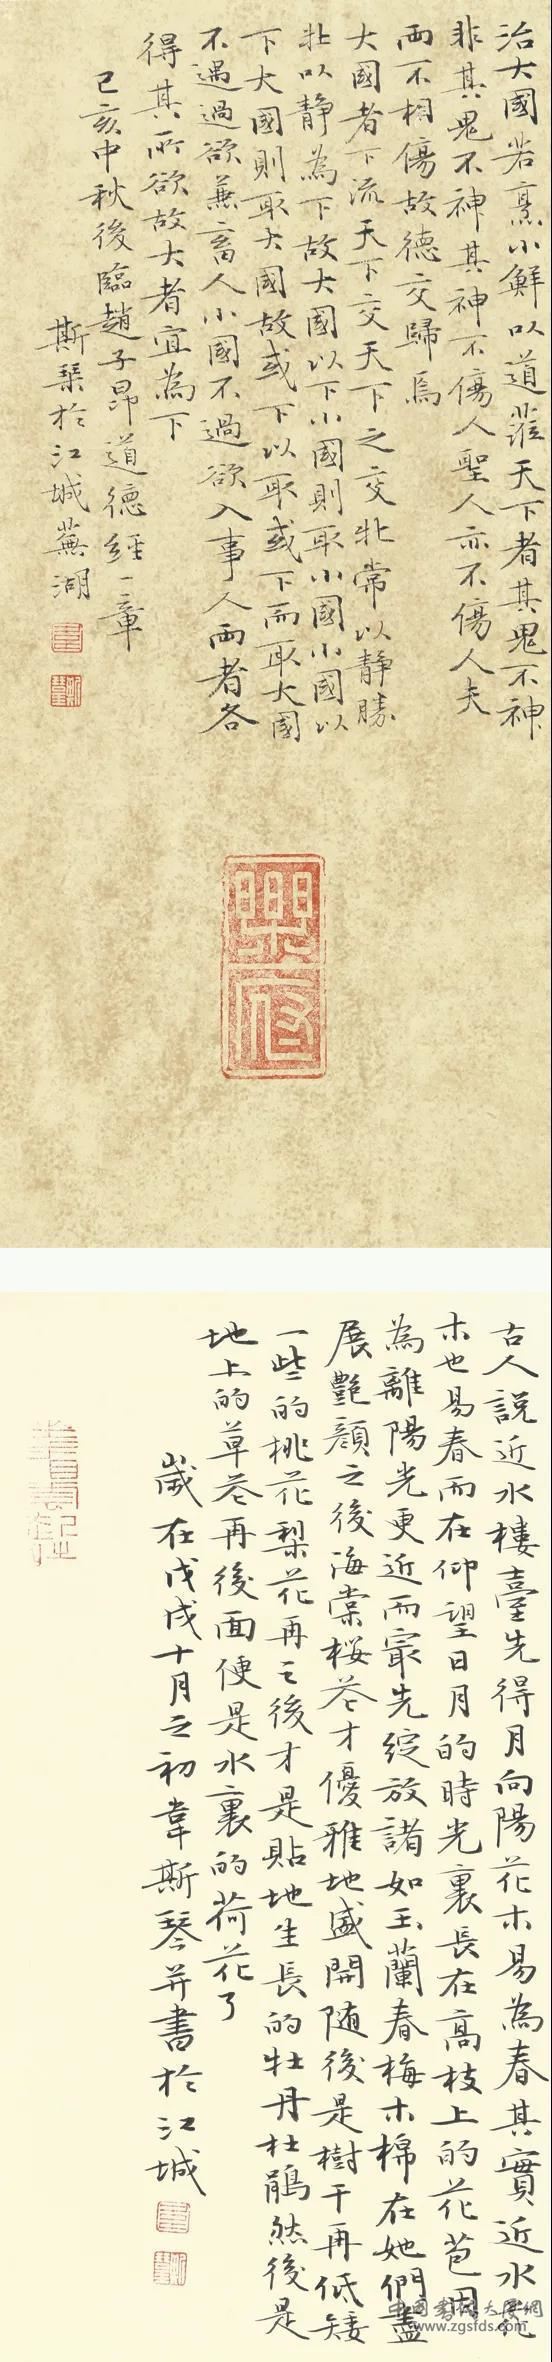 治大國若烹小鮮以道蒞天下者其鬼不神
非其鬼不神其神不傷人聖人亦不傷人夫
兩不相傷故德交歸焉
大國者下流天下交天下之交牝常以靜勝
牡以靜為下故大國以下小國則取小國小國以
下大國則取大國故或下以取或下而取大國
不過過欲兼畜人小國不過欲入事人兩者各
得其所欲故大者宜為下
己亥中秋後臨趙子昂道德經一章
斯琴於江城蕪湖
樂府
古人說近水樓臺先得月向陽花木易為春其實近水花
木也易春而在仰望日月的時光裏長在高枝上的花苞因
為離陽光更近而最先綻放諸如玉蘭春梅木棉在她們盡
展艷顏之後海棠桜花才優雅地盛開随後是樹干再低矮
一些的桃花梨花再之後才是貼地生長的牡丹杜鵑然後是
地上的草花再後面便是水裏的荷花了
歲在戊戌十月之初韋斯琴并書於江城
中國書法大厦網
www.zgsfds.com